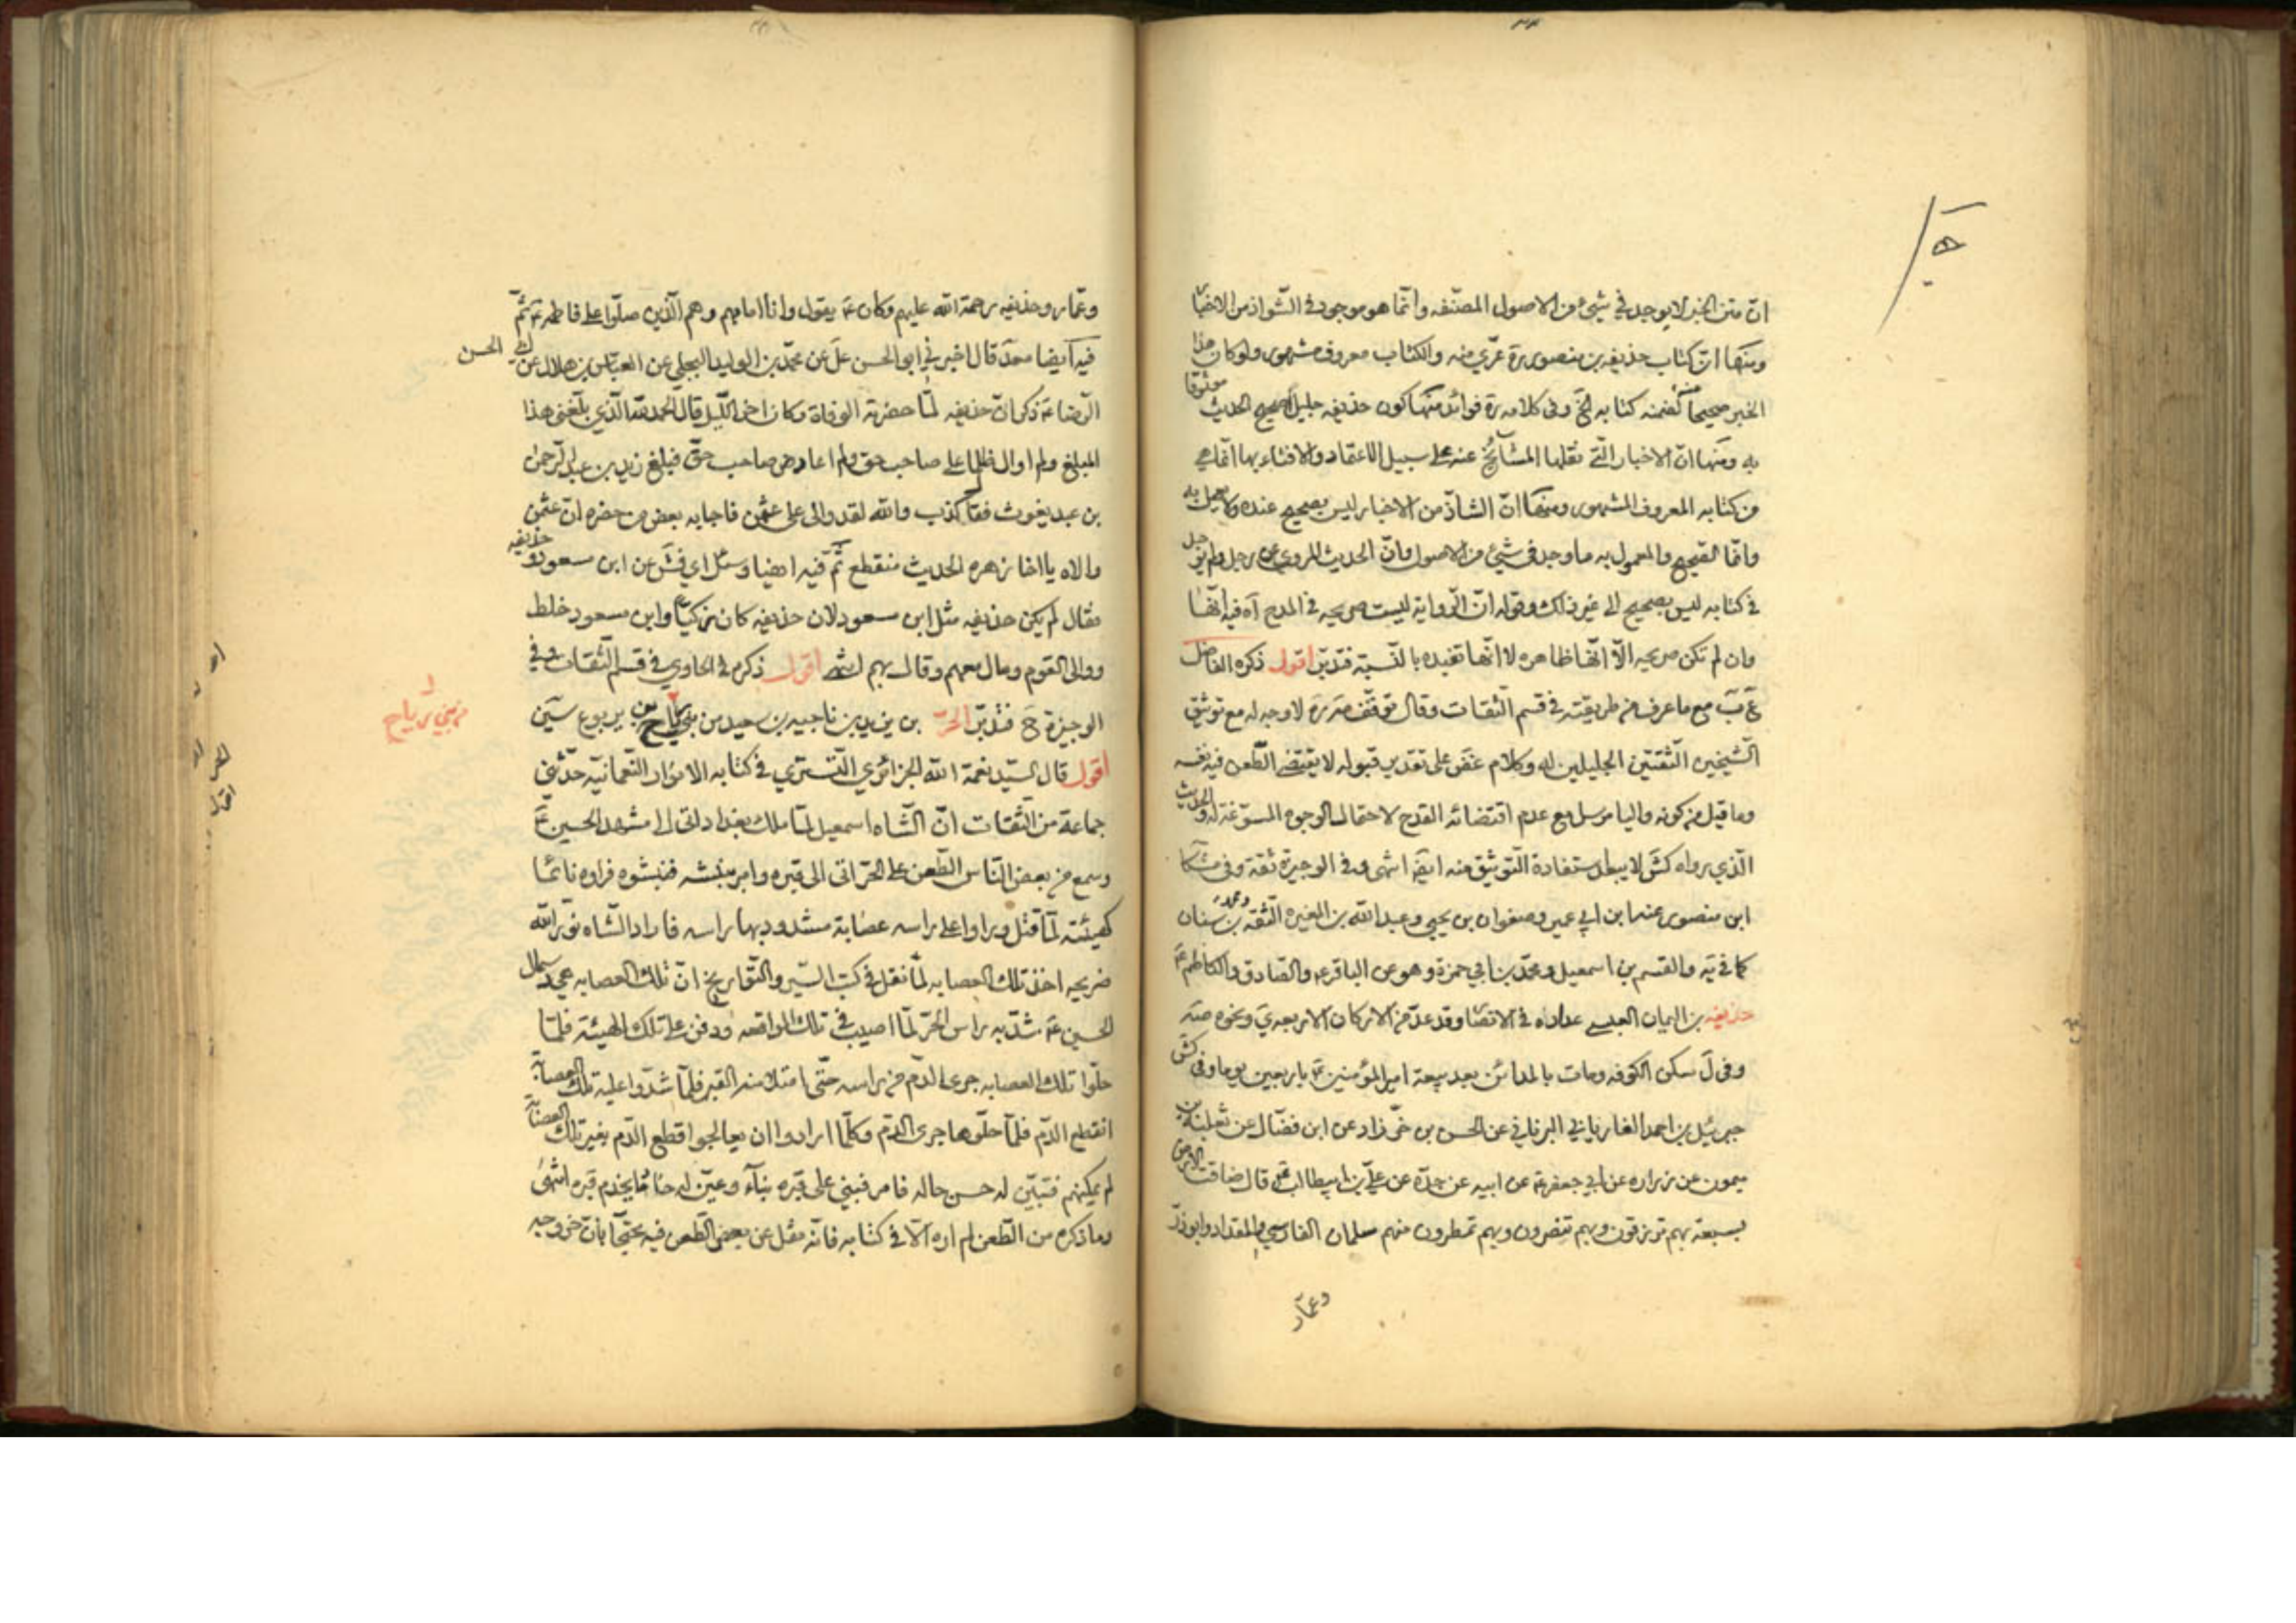 انّ متن الخبر لا يوجد في شيئ من الاصول المصنّفه وانّما هو موجود في الشّواذ من الاخبار
ومنها انّ كتاب حذيفه بن منصور ره عرّي منه والكتاب معروف مشهور ولو كان هذا
الخبر صحيحا عنه لضمنه كتابه الخ وفي كلامه ره فوائد منها كون حذيفه جليلا صحيح الحديث موثوقا
به ومنها انّ الاخبار الّتي نقلها المشائخ عنه على سبيل الاعتقاد والافتاء بها انّما هي
من كتابه المعروف المشهور ومنها انّ الشاذّ من الاخبار ليس بصحيح عنده ولا يعمل به
وانّما الصّحيح والمعمول به ما وجد في شيئ من الاصول وانّ الحديث المروي عن رجل ولم يوجد
في كتابه ليس بصحيح الى غير ذلك وقوله انّ الرّواية ليست صريحه في المدح اه فيه انّها
وان لم تكن صريحه الّا انّها ظاهره لا انّها تفيده بالنّسبة فتدبّر اقول ذكره الفاضل
عب مع ما عرف من طريقته في قسم الثّقات وقال توقّف مه ره لا وجه له مع توثيق
الشّيخين الثّقتين الجليلين له وكلام غض على تقدير قبوله لا يقتضي الطّعن فيه نفسه
وما قيل من كونه واليا مرسل مع عدم اقتضائه القدح لاحتمال الوجوه المسوّغة له والحديث
الّذي رواه كش لا يبعد استفادة التّوثيق منه ايضا انتهى وفي الوجيزة ثقة وفي مشكا
ابن منصور عنه ابن ابي عمير وصفوان بن يحيى وعبد الله بن المغيره الثّقة ومحمد بن سنان
كما في يه والقسم بن اسمعيل ومحمّد بن ابي حمزة وهو عن الباقر ع والصّادق والكاظم ع
حذيفه بن اليمان العبسي عداده في الانصار وقد عدّ من الاركان الاربعه ي ونحوه صه
وفي ل سكن الكوفه ومات بالمدائن بعد بيعة امير المؤمنين ع باربعين يوما وفي كش
جبرئيل بن احمد الفاريابي البرناني عن الحسن بن خرّزاد عن ابن فضّال عن ثعلبة بن
ميمون عن زراره عن ابي جعفر ع عن ابيه عن جدّه عن عليّ بن ابيطالب ع قال ضاقت الارض
بسبعة بهم ترزقون وبهم تنصرون وبهم تمطرون منهم سلمان الفارسي والمقداد وابوذرّ
وعمّار
وعمّار وحذيفه رحمة الله عليهم وكان ع يقول وانا امامهم وهم الّذين صلّوا على فاطمه ع ثمّ
فيه ايضا محمد قال اخبرني ابو الحسن عل عن محمّد بن الوليد البجلي عن العبّاس بن هلال عن ابي الحسن
الرّضا ع ذكر انّ حذيفه لمّا حضرته الوفاة وكان اخر اللّيل قال الحمد لله الّذي بلّغني هذا
المبلغ ولم اوال ظالما على صاحب حق ولم اعاد صاحب حقّ فبلغ زيد بن عبد الرّحمن
بن عبد يغوث فقال كذب والله لقد والى على عثمن فاجابه بعض من حضره انّ عثمن
والاه يا اخا زهره الحديث منقطع ثمّ فيه ايضا وسئل اي فش عن ابن مسعود وحذيفه
فقال لم يكن حذيفه مثل ابن مسعود لان حذيفه كان زكيّا وابن مسعود خلط
ووالى القوم ومال معهم وقال بهم انتهى اقول ذكره في الحاوي في قسم الثّقات وفي
الوجيزة ح فتدبّر الحرّ بن يزيد بن ناجيه بن سعيد من بني رياح بن يربوع سين
من بني رياح
اقول قال السّيّد نعمة الله الجزائري التّستري في كتابه الانوار النّعمانيّه حدّثني
جماعة من الثّقات انّ الشّاه اسمعيل لمّا ملك بغداد اتى الى مشهد الحسين ع
وسمع من بعض النّاس الطّعن على الحرّ اتى الى قبره وامر بنبشه فنبشوه فراوه نائما
كهيئته لمّا قتل وراوا على راسه عصابة مشدود بها راسه فاراد الشّاه نوّر الله
ضريحه اخذ تلك العصابه لمّا نقل في كتب السّير والتّواريخ انّ تلك العصابه هي دسمال
الحسين ع شدّ به راس الحرّ لمّا اصيب في تلك الواقعه ودفن على تلك الهيئة فلمّا
حلّوا تلك العصابه جرى الدّم من راسه حتّى امتلا منه القبر فلمّا شدّوا عليه تلك العصابة
انقطع الدّم فلمّا حلّوها جرى الدّم وكلّما ارادوا ان يعالجوا قطع الدّم بغير تلك العصابة
لم يمكنهم فتبيّن له حسن حاله فامر فبني على قبره بناء وعيّن له خادما يخدم قبره انتهى
وما ذكره من الطّعن لم اره الّا في كتابه فانّه نقل عن بعض الطّعن فيه محتجّا بانّ خروجه